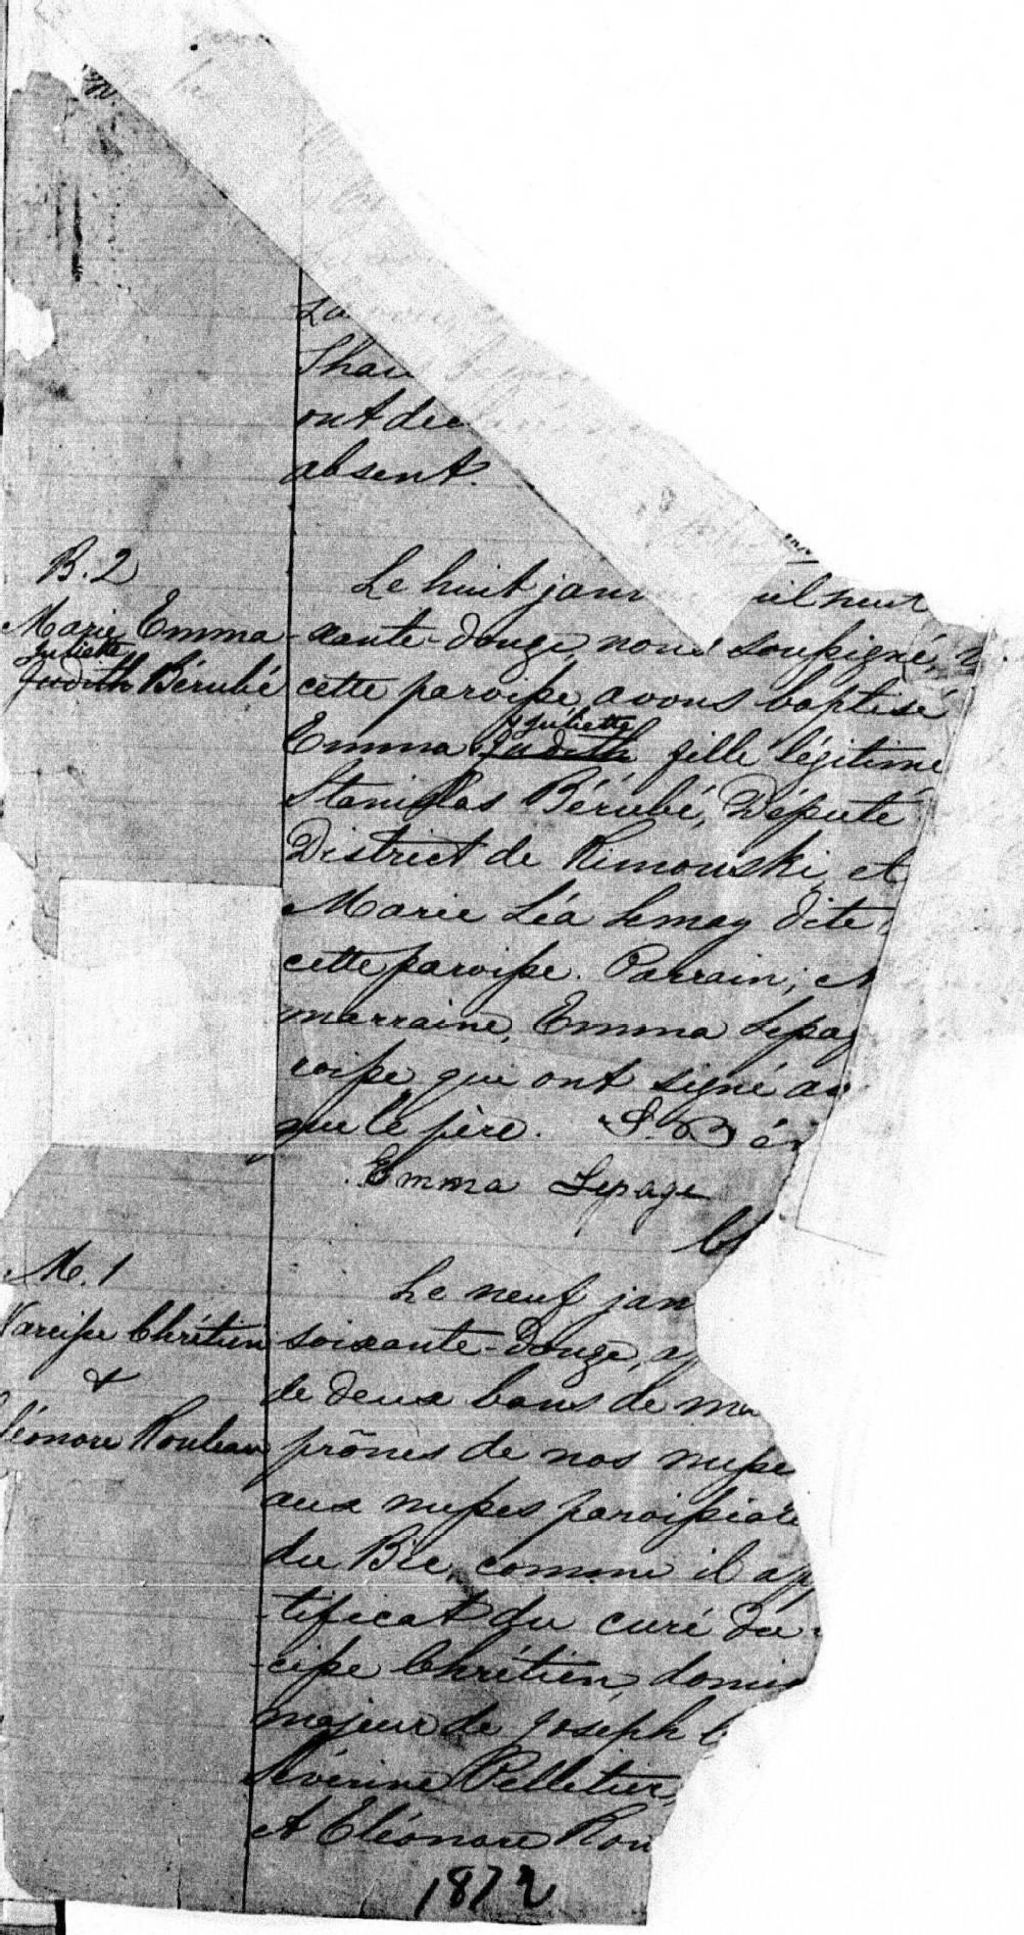 ont déc
absent.
B. 2
Le huit janv il huit
Marie Emma
Juliette
Judith Bérubé
xante-douze, nous soussigné,
cette paroisse, avons baptisé
Juliette
Emma Judith fille légitime
Stanislas Bérubé, Député
District de Rimouski, et
Marie Léa Lemay dite
cette paroisse. Parrain;
marraine, Emma Lepag
roisse qui ont signé av
que le père. S. Bér
Emma Lepage
M. 1
Narcisse Chrétien
&
Eléonore Rouleau
Le neuf jan
soixante-Douze, ap
de deux bans de ma
prônes de nos messe
aux messes paroissiale
du Bic, comme il app
-tificat du curé du
-cisse Chrétien, domic
majeur de Joseph C
Séverine Pelletier,
et Eléonore Rou
1872